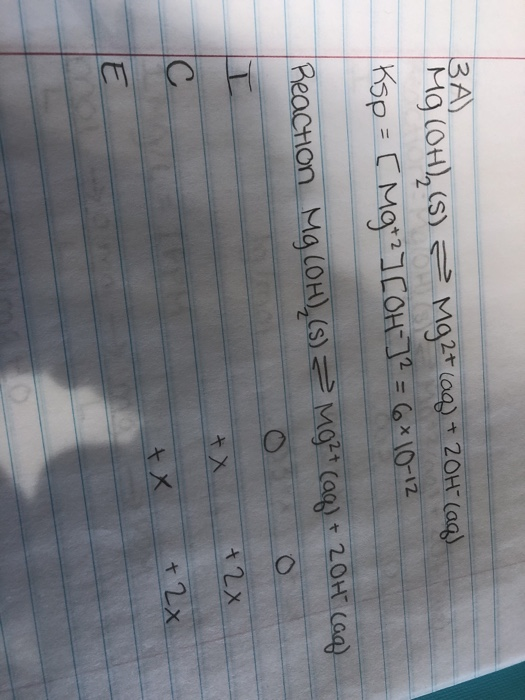 3A)
Mg(OH)₂(s) ⇌ Mg2+(aq) + 2OH⁻(aq)
Ksp = [Mg⁺²][OH⁻]² = 6×10⁻¹²
Reaction Mg(OH)₂(s) ⇌ Mg²⁺(aq) + 2OH⁻(aq)
I 0 0
C +x +2x
E +x +2x